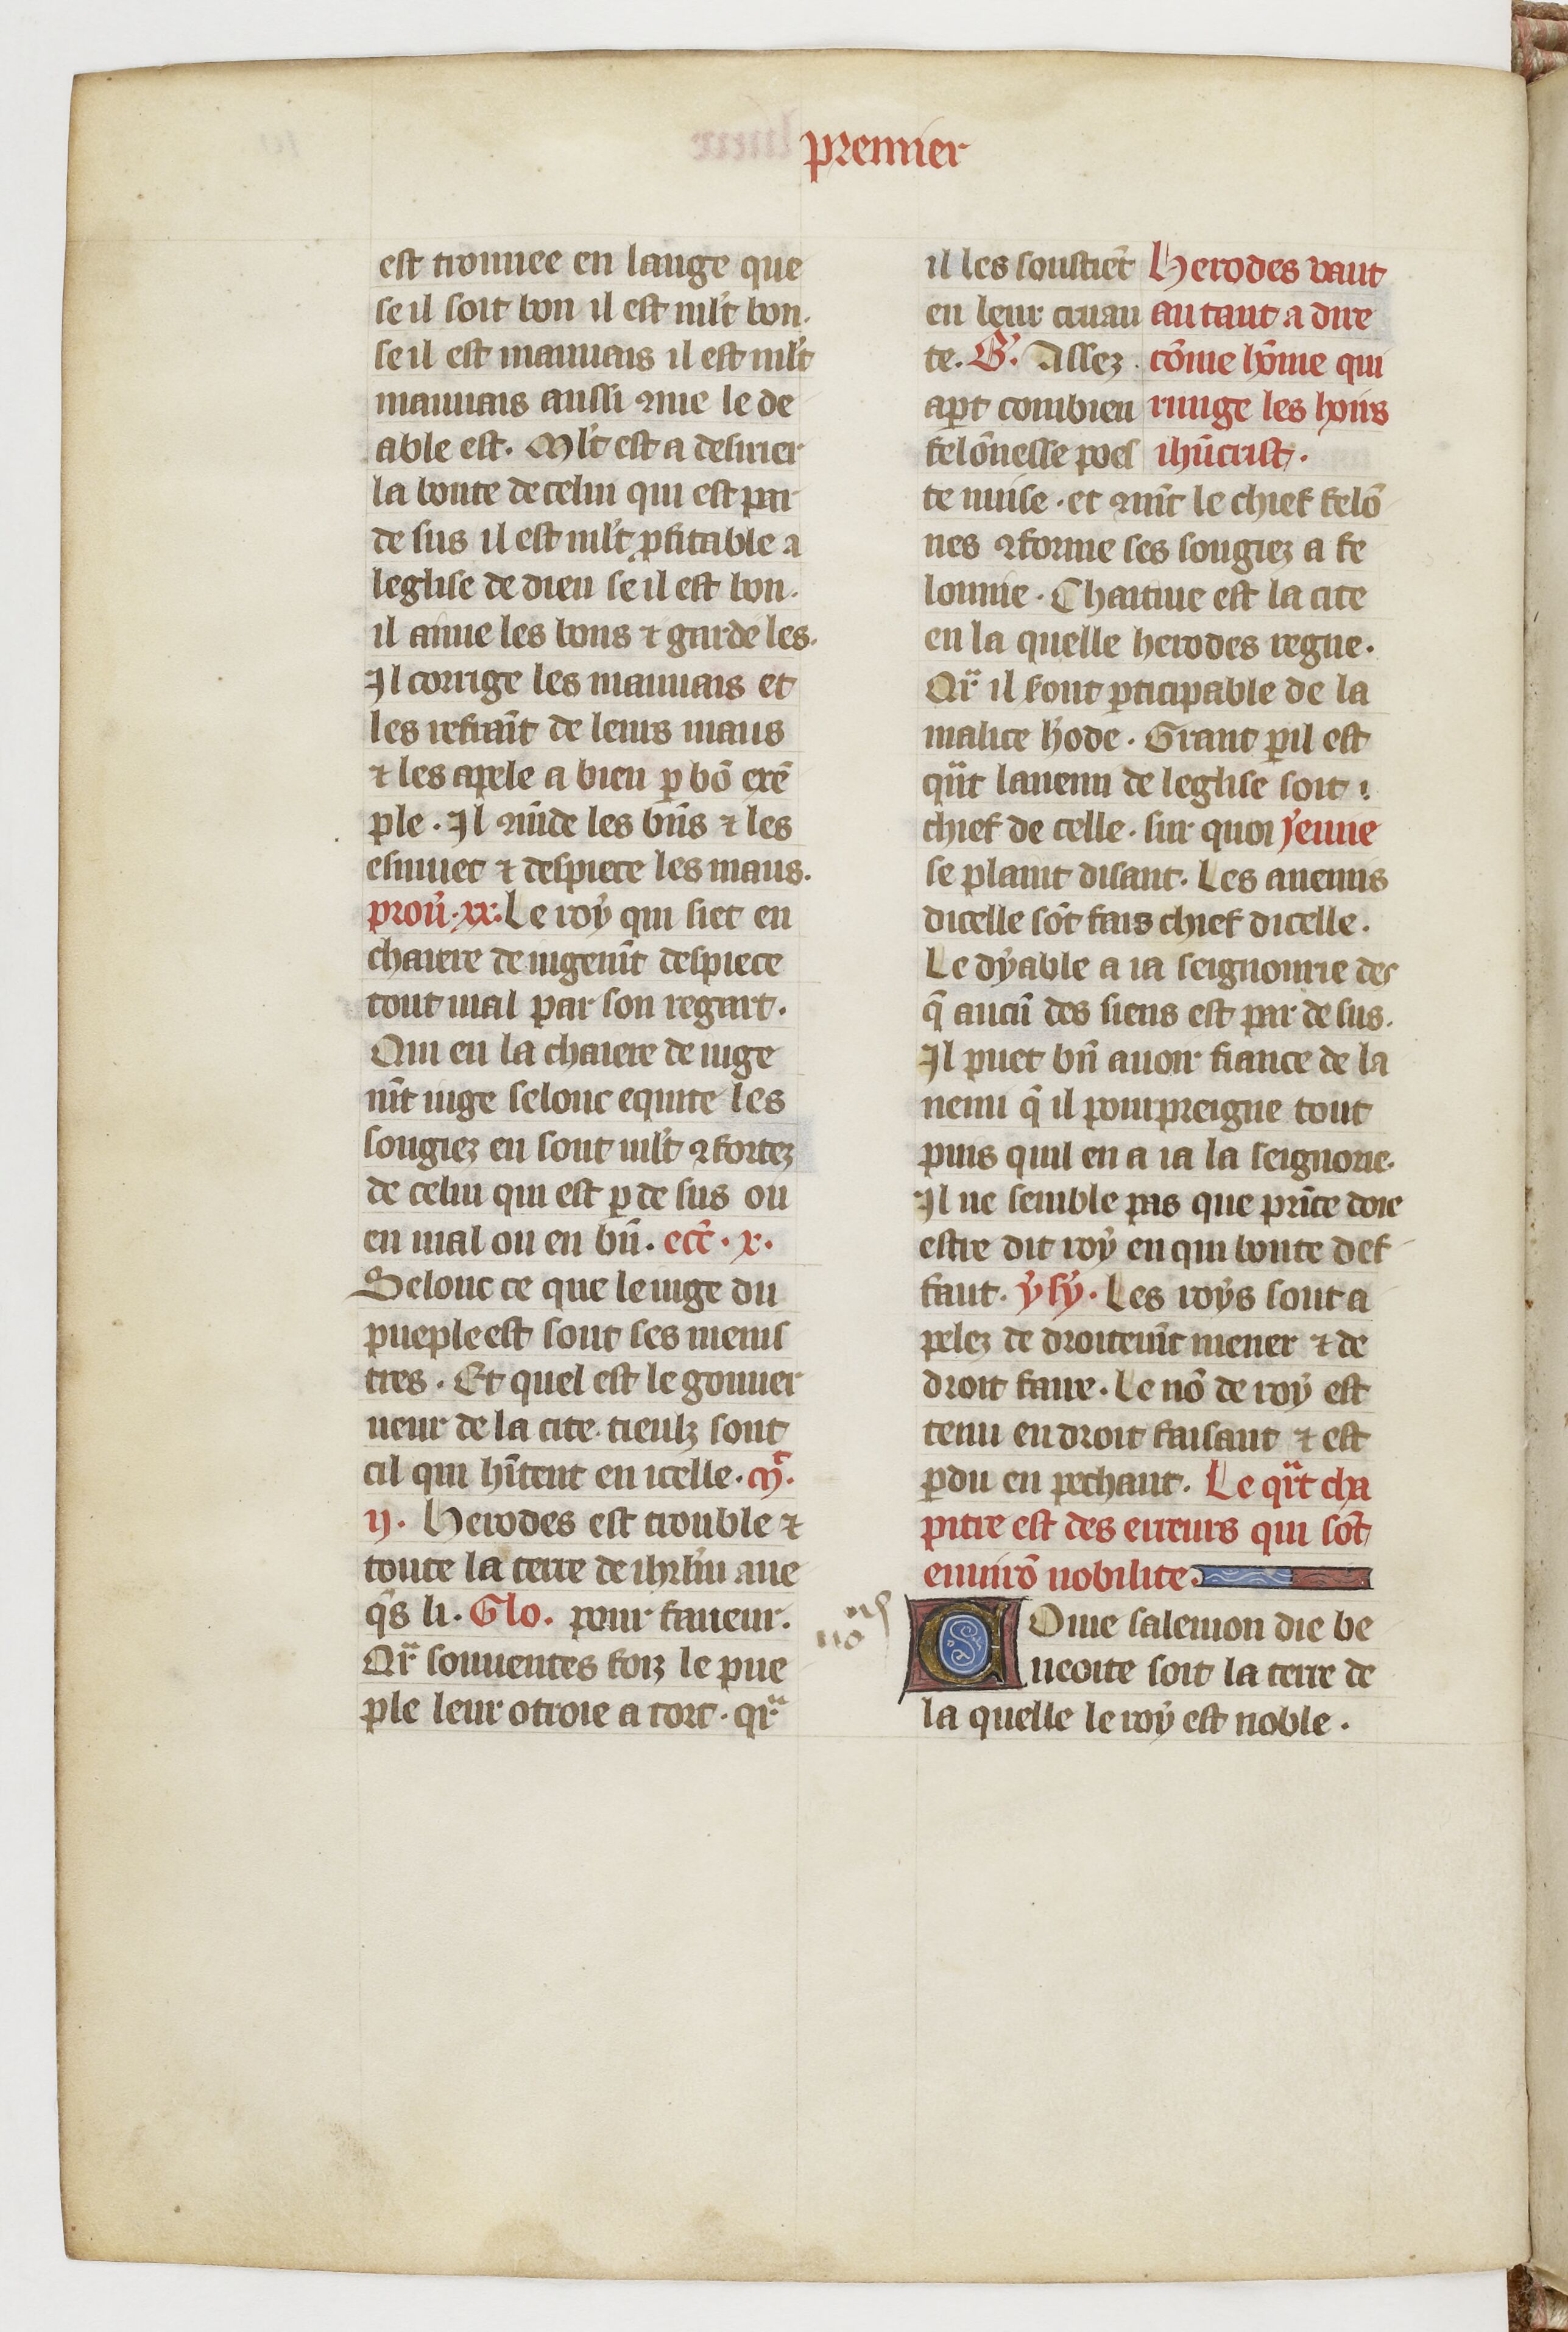 premier
est trouuee en lange que
se il soit bon il est ml̓t bon.
se il est mauuais il est ml̓t
mauuais aussi ꝯme le de
able est. Ml̓t est a desirier
la bonte de celui qui est par
de sus il est ml̓t ꝓfitable a
leglise de dieu se il est bon.
il aime les bons ⁊ garde les.
Il corrige les mauuais et
les refraīt de leurs maus
⁊ les apele a bien ꝑ bō exē
ple. Il ꝯmāde les bn̄s ⁊ les
esmuet ⁊ despiece les maus.
proū. xx. Le roẏ qui siet en
chaiere de iugem̄t despiece
tout mal par son regart.
Qui en la chaiere de iuge
m̄t iuge selonc equite les
sougiez en sont ml̓t ꝯfortez
de celui qui est ꝑ de sus ou
en mal ou en bn̄. ecc̄. x.
Selonc ce que le iuge du
pueple est sont ses menis
tres. Et quel est le gouuer
neur de la cite. tieulz sont
cil qui hītent en icelle.
ij. Herodes est trouble ⁊
toute la terre de ihrl̓m aue
q̄s li. Glo. pour faueur.
Qr̄ souuentes foiz le pue
ple leur otroie a tort. qr̄
il les soustiēt
en leur cruau
te. G̓. Assez
apt combien
felōnesse poes
Herodes vaut
autant a dire
cōme hōme qui
runge les hoirs
ihūcrist.
te nuise. et ꝯm̄t le chief felō
nes ꝯforme ses sougiez a fe
lonnie. Chaitiue est la cite
en la quelle herodes regne.
Qr̄ il font ꝑticipable de la
malice h̓ode. Grant ꝑil est
qn̄t lanemi de leglise soit i
chief de celle. sur quoi j̓eme
se plaint disant. Les anemis
dicelle sōt fais chief dicelle.
Le dẏable a ia seignourie des
q̄ aucū des siens est par de sus.
Il puet bn̄ auoir fiance de la
nemi q̄ il pourpreigne tout
puis quil en a ia la seignorie.
Il ne semble pas que prīce doie
estre dit roẏ en qui bonte def
faut. ẏsẏ. Les roẏs sont a
pelez de droitem̄t mener ⁊ de
droit faire. Le nō de roẏ est
tenu en droit faisant ⁊ est
ꝑdu en pechant. Le qr̄t cha
pitre est des erreurs qui sōt
enuirō nobilite.
COme salemon die be
neoite soit la terre de
la quelle le roẏ est noble.